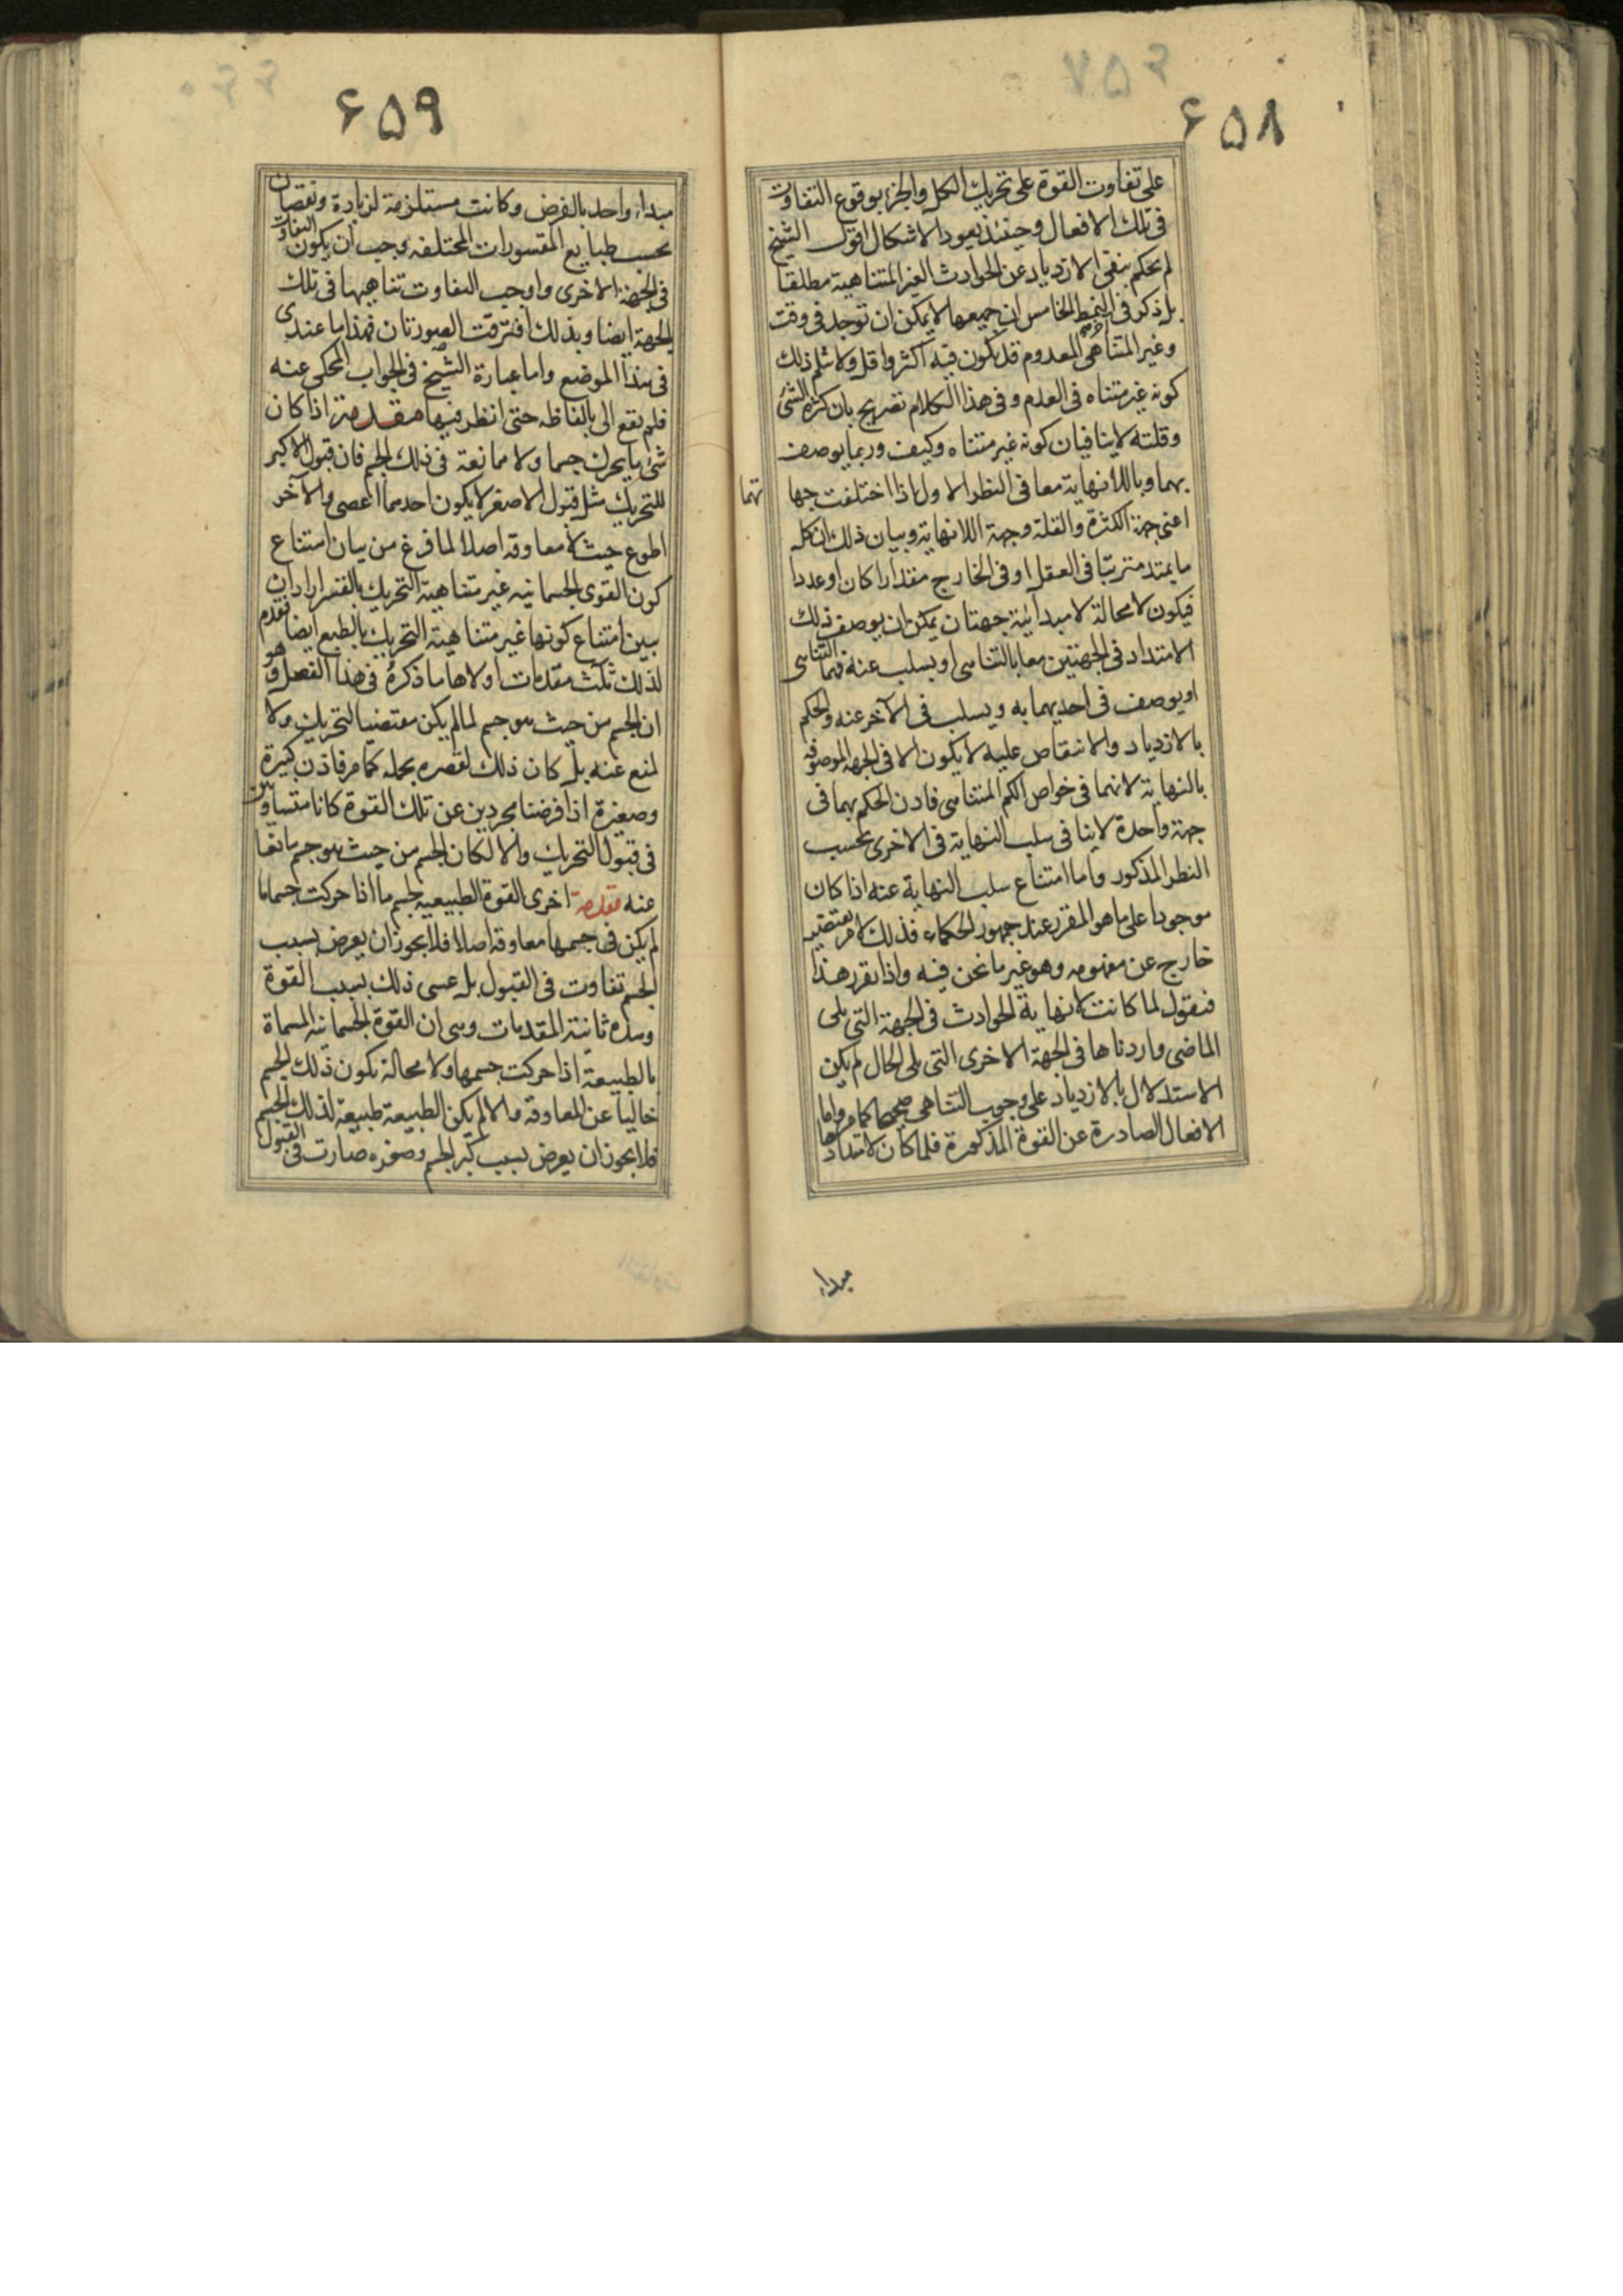 ۶۵۸
على تفاوت القوة على تحريك الكل والجزء بوقوع التفاوت
فى تلك الافعال وحينئذ يعود الاشكال اقول الشيخ
لم يحكم بنفى الازدياد عن الحوادث الغير المتناهية مطلقا
بل ذكر فى النمط الخامس ان جميعها لا يمكن ان توجد فى وقت
وغير المتناهى المعدوم قد يكون فيه اكثر واقل ولا يثلم ذلك
كونه غير متناه فى العدم وفى هذا الكلام تصريح بان كثرة الشئ
وقلته لا ينافيان كونه غير متناه وكيف وربما يوصف
بهما وباللانهاية معا فى النظر الاول اذا اختلفت جها
تهما
اعنى جهة الكثرة والقلة وجهة اللانهاية وبيان ذلك ان كل
ما يمتد مترتبا فى العقل او فى الخارج مقدارا كان او عددا
فيكون لا محالة لامبدائية جهتان يمكن ان يوصف ذلك
الامتداد فى الجهتين معا بالتناهى او يسلب عنه فيهما التناهى
او يوصف فى احديهما به ويسلب فى الآخر عنه والحكم
بالازدياد والانتقاص عليه لا يكون الا فى الجهة الموصوفه
بالنهاية لانهما فى خواص الكم المتناهى فاذن الحكم بهما فى
جهة واحدة لا ينافى سلب النهاية فى الاخرى بحسب
النظر المذكور واما امتناع سلب النهاية عنه اذا كان
موجودا على ما هو المقرر عند جمهور الحكماء فذلك لامر يقتضيه
خارج عن مفهومه وهو غير ما نحن فيه واذا تقرر هذا
فنقول لما كانت لانهاية الحوادث فى الجهة التى يلى
الماضى وازديادها فى الجهة الاخرى التى يلى الحال لم يكن
الاستدلال بالازدياد على وجوب التناهى صحيحا كما مر واما
الافعال الصادرة عن القوة المذكورة فلما كان لامتدادها
مبداء
۶۵۹
مبداء واحد بالفرض وكانت مستلزمة لزيادة ونقصان
بحسب طبايع المقسورات المختلفه وجب ان يكون التفاوت
فى الجهة الاخرى واوجب التفاوت تناهيها فى تلك
الجهة ايضا وبذلك افترقت الصورتان فهذا ما عندى
فى هذا الموضع واما عبارة الشيخ فى الجواب المحكى عنه
فلم يقع الى بالفاظه حتى انظر فيها مقدمة اذا كان
شئ ما يحرك جسما ولا ممانعة فى ذلك الجسم فان قبول الاكبر
للتحريك مثل قبول الاصغر لا يكون احدهما اعصى والآخر
اطوع حيث لا معاوقه اصلا لما فرغ من بيان امتناع
كون القوى الجسمانيه غير متناهية التحريك بالقسر اراد ان
يبين امتناع كونها غير متناهية التحريك بالطبع ايضا فقدم
لذلك ثلث مقدمات اولاها ما ذكره فى هذا الفصل وهو
ان الجسم من حيث هو جسم لما لم يكن مقتضيا لتحريك ولا
لمنع عنه بل كان ذلك لقصره بحمله كما مر فاذن كبيرة
وصغيرة اذا فرضنا مجردين عن تلك القوة كانا متساويين
فى قبول التحريك والا لكان الجسم من حيث هو جسم مانعا
عنه مقدمة اخرى القوة الطبيعيه لجسم ما اذا حركت جسمها
لم يكن فى جسمها معاوقه اصلا فلا يجوز ان يعرض بسبب
الجسم تفاوت فى القبول بل عسى ذلك بسبب القوة
وهذه ثانية المقدمات وهى ان القوة الجسمانيه المسماة
بالطبيعة اذا حركت جسمها ولا محالة يكون ذلك الجسم
خاليا عن المعاوقه والا لم يكن الطبيعة طبيعة لذلك الجسم
فلا يجوز ان يعرض بسبب كبر الجسم وصغره صارت فى القبول